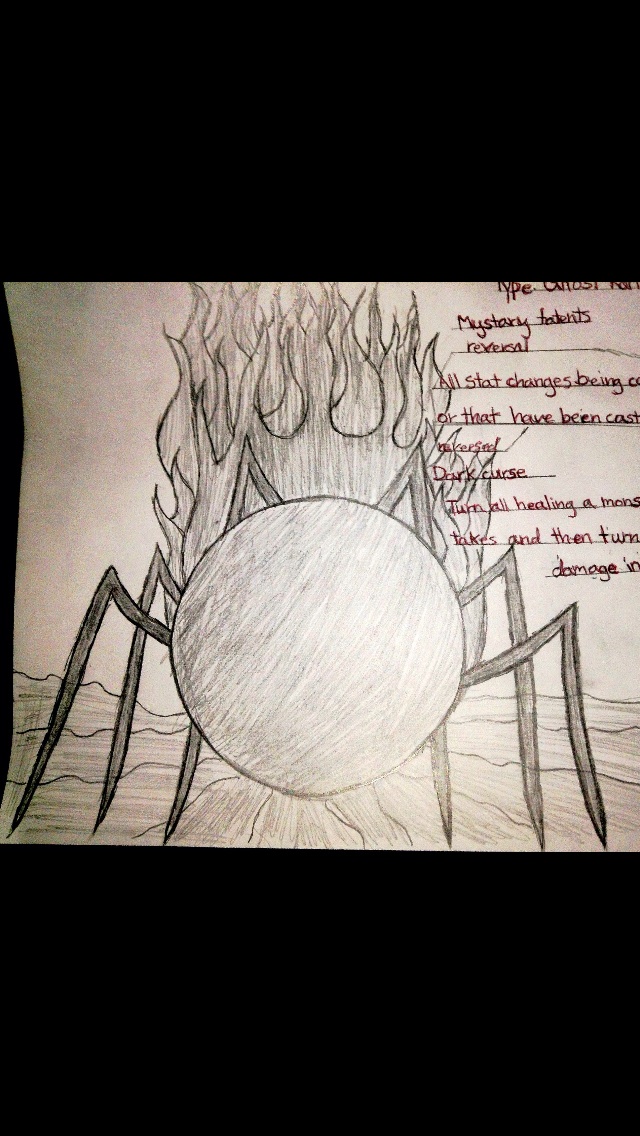 Type:
Mystary talents
reversal
All stat changes being
or that have been cast
reversed
Dark curse
Turn all healing a mons
takes and then turn
damage in